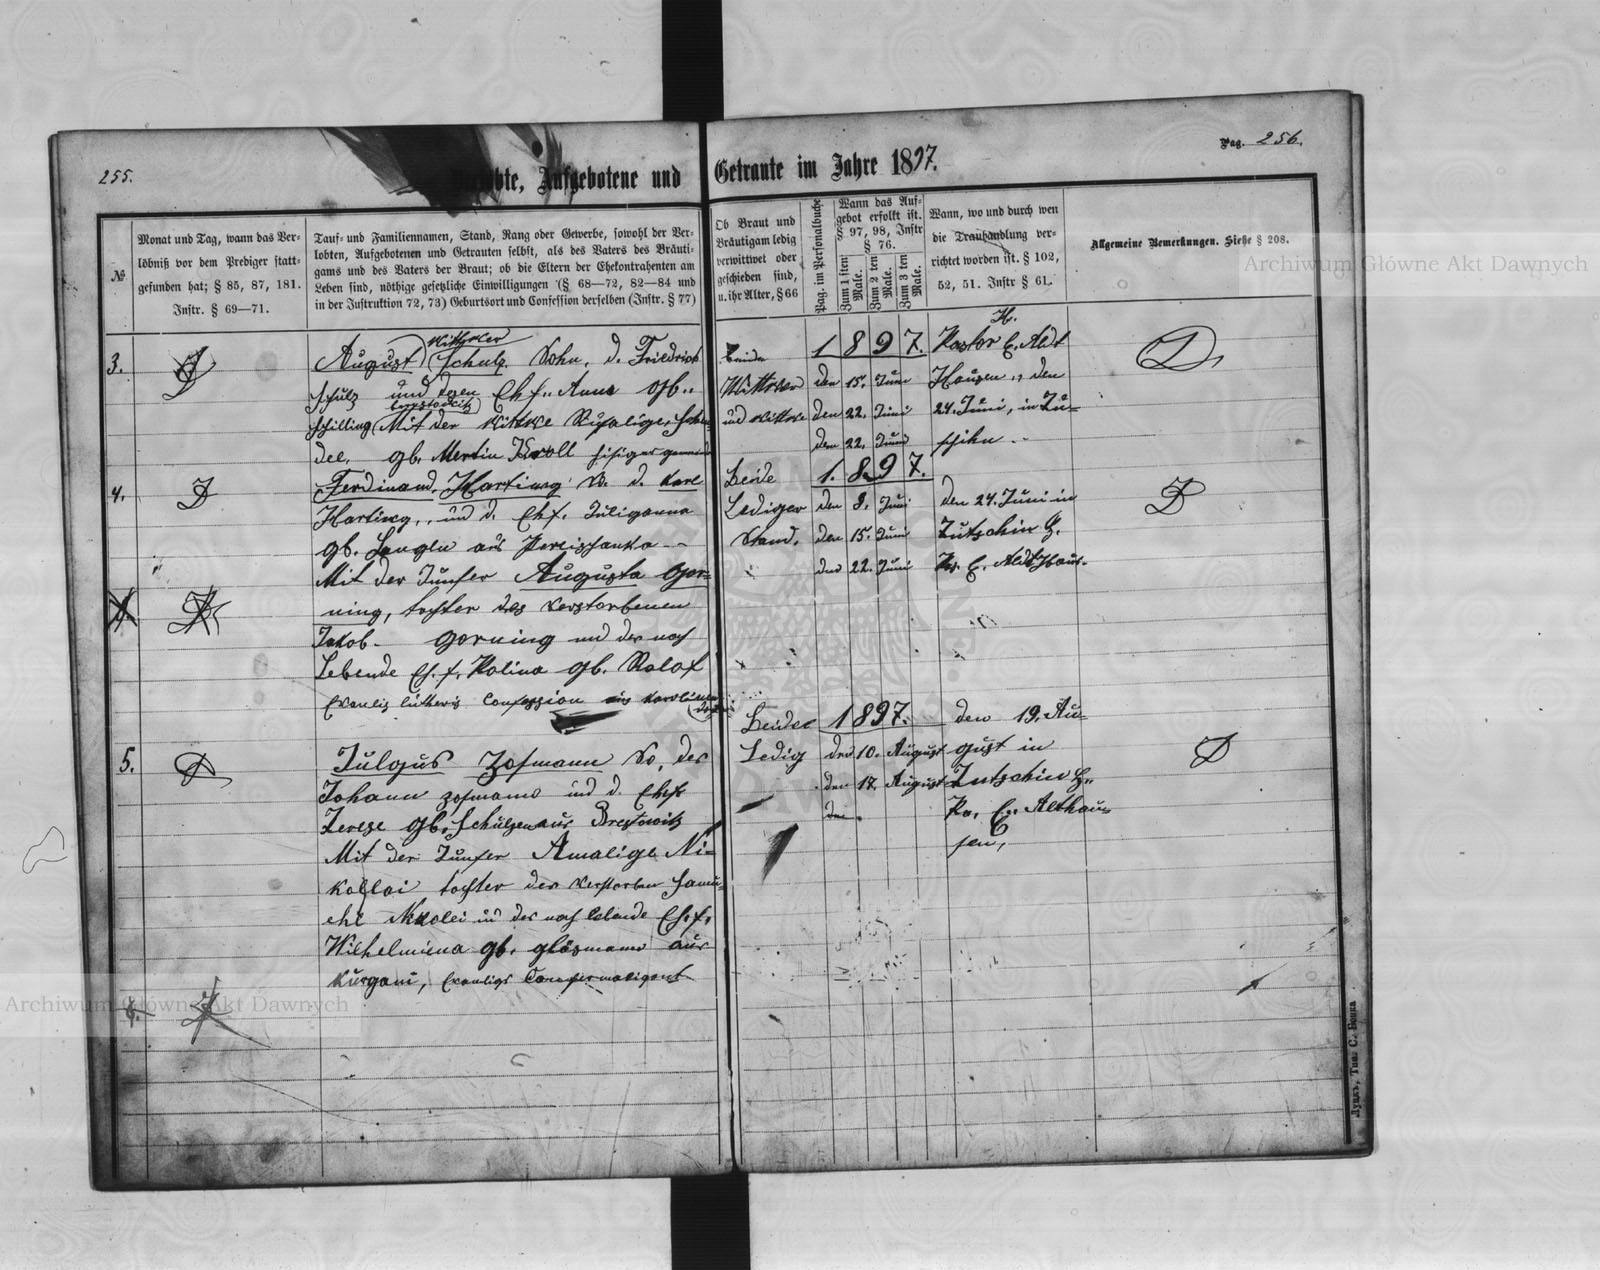 255.
Pag. 256.
Verlobte, Aufgebotene und Getraute im Jahre 1897.
№
Monat und Tag, wann das Ver-
löbniß vor dem Prediger statt-
gefunden hat; § 85, 87, 181.
Instr. § 69—71.
Tauf- und Familiennamen, Stand, Rang oder Gewerbe, sowohl der Ver-
lobten, Aufgebotenen und Getrauten selbst, als des Vaters des Bräuti-
gams und des Vaters der Braut; ob die Eltern der Ehekontrahenten am
Leben sind, nöthige gesetzliche Einwilligungen (§ 68—72, 82—84 und
in der Instruktion 72, 73) Geburtsort und Confession derselben (Instr. § 77)
Ob Braut und
Bräutigam ledig
verwittwet oder
geschieden sind,
u. ihr Alter, § 66
Pag. im Personalbuche
Wann das Auf-
gebot erfolkt ist.
§ 97, 98, Instr
§ 76.
Zum 1 sten Male.
Zum 2 ten Male.
Zum 3 ten Male.
Wann, wo und durch wen
die Trauhandlung ver-
richtet worden ist. § 102,
52, 51. Instr § 61.
Allgemeine Bemerkungen. Siehe § 208.
3.
Wittwer
August Schulz. Sohn, d. Friedrich
Schulz und dessen Ehf. Anna gb.
Schilling Mit der Wittwe
gb. Martin Kroll
Beide
Wittwer
und Wittwe
1897.
den 15. Juni
den 22. Juni
den 22. Juni
Pastor E. Alt
Hausen den
24. Juni, in Tu-
tschin
4.
Ferdinand Harting So. d. Karl
Harting, und d. Ehf. Juliganna
gb. Langen aus
Mit der Junfer Augusta Gor-
ning, tochter des verstorbenen
Jakob Gorning und der noch
Lebende Eh. f. Palina gb. Rolof
Confession aus
Beide
Lediger
Stand.
1897.
den 8. Juni
den 15. Juni
den 22. Juni
den 24. Juni in
Tutschin H.
Pr. E. Aldthaus.
5.
Julgus Zosmann So. des
Johann Zosmann und d. Ehf.
Tereze gb. Schulzen aus Brestowitz
Mit der Junfer Amalige Ni-
kollai tochter des verstorben Samu-
ehl Nikolei und der noch lebende Eh. f.
Wilhelmiena gb. Gläsmann aus
Kurgani,
Beide
Ledig
1897.
den 10. August
den 17. August
den
den 19. Au-
gust in
Tutschin H.
Pr. E. Althau-
sen,
Луцкъ, Тип. С. Бонка
Archiwum Główne Akt Dawnych
Archiwum Główne Akt Dawnych